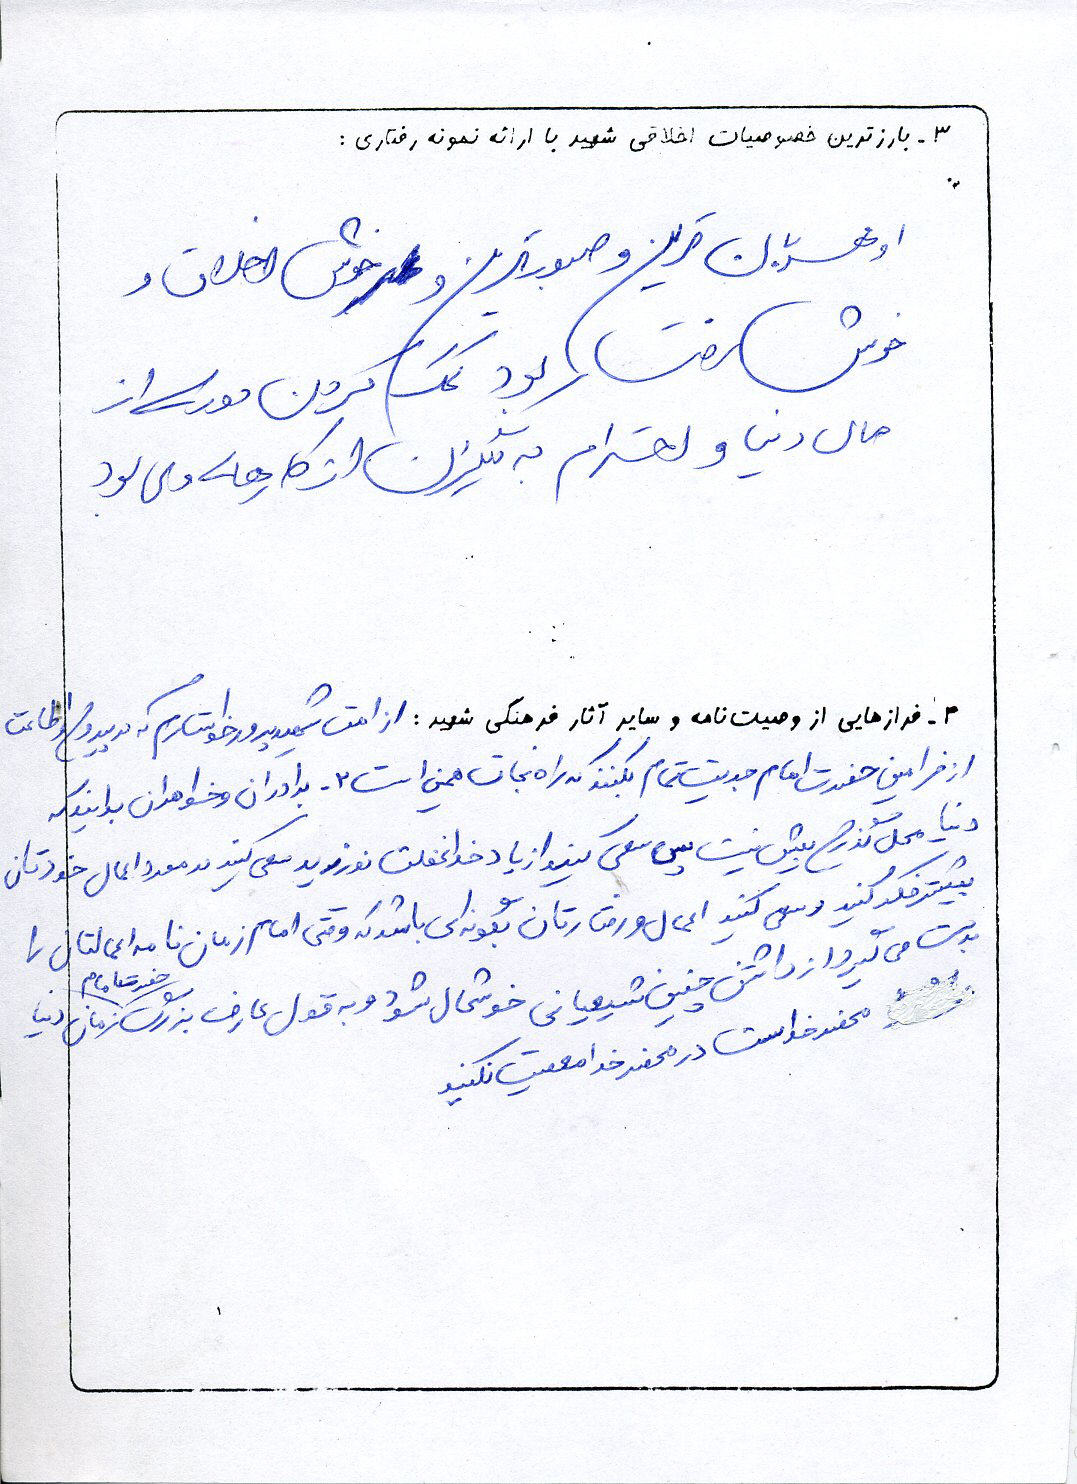 ۳- بارزترین خصوصیات اخلاقی شهید با ارائه نمونه رفتاری :
او مهربان ترین و صبورترین و خوش اخلاق و
خوش رفتار بود کمک کردن دوری از
مال دنیا و احترام به دیگران از کارهای وی بود
۴- فرازهایی از وصیت‌نامه و سایر آثار فرهنگی شهید : از امت شهیدپرور خواستارم که در پیروی و اطاعت
از فرامین حضرت امام جدیت تمام بکنند که راه نجات همین است ۲- برادران و خواهران بدانید که
دنیا محل گذری بیش نیست پس سعی کنید از یاد خدا غفلت نورزید سعی کنید در مورد اعمال خودتان
بیشتر فکر کنید و سعی کنید اعمال و رفتارتان بگونه‌ای باشد که وقتی امام زمان نامه اعمالتان را
بدست می گیرد از داشتن چنین شیعیانی خوشحال شود و به قول عارف بزرگ زمان حضرت امام دنیا
محضر خداست در محضر خدا معصیت نکنید